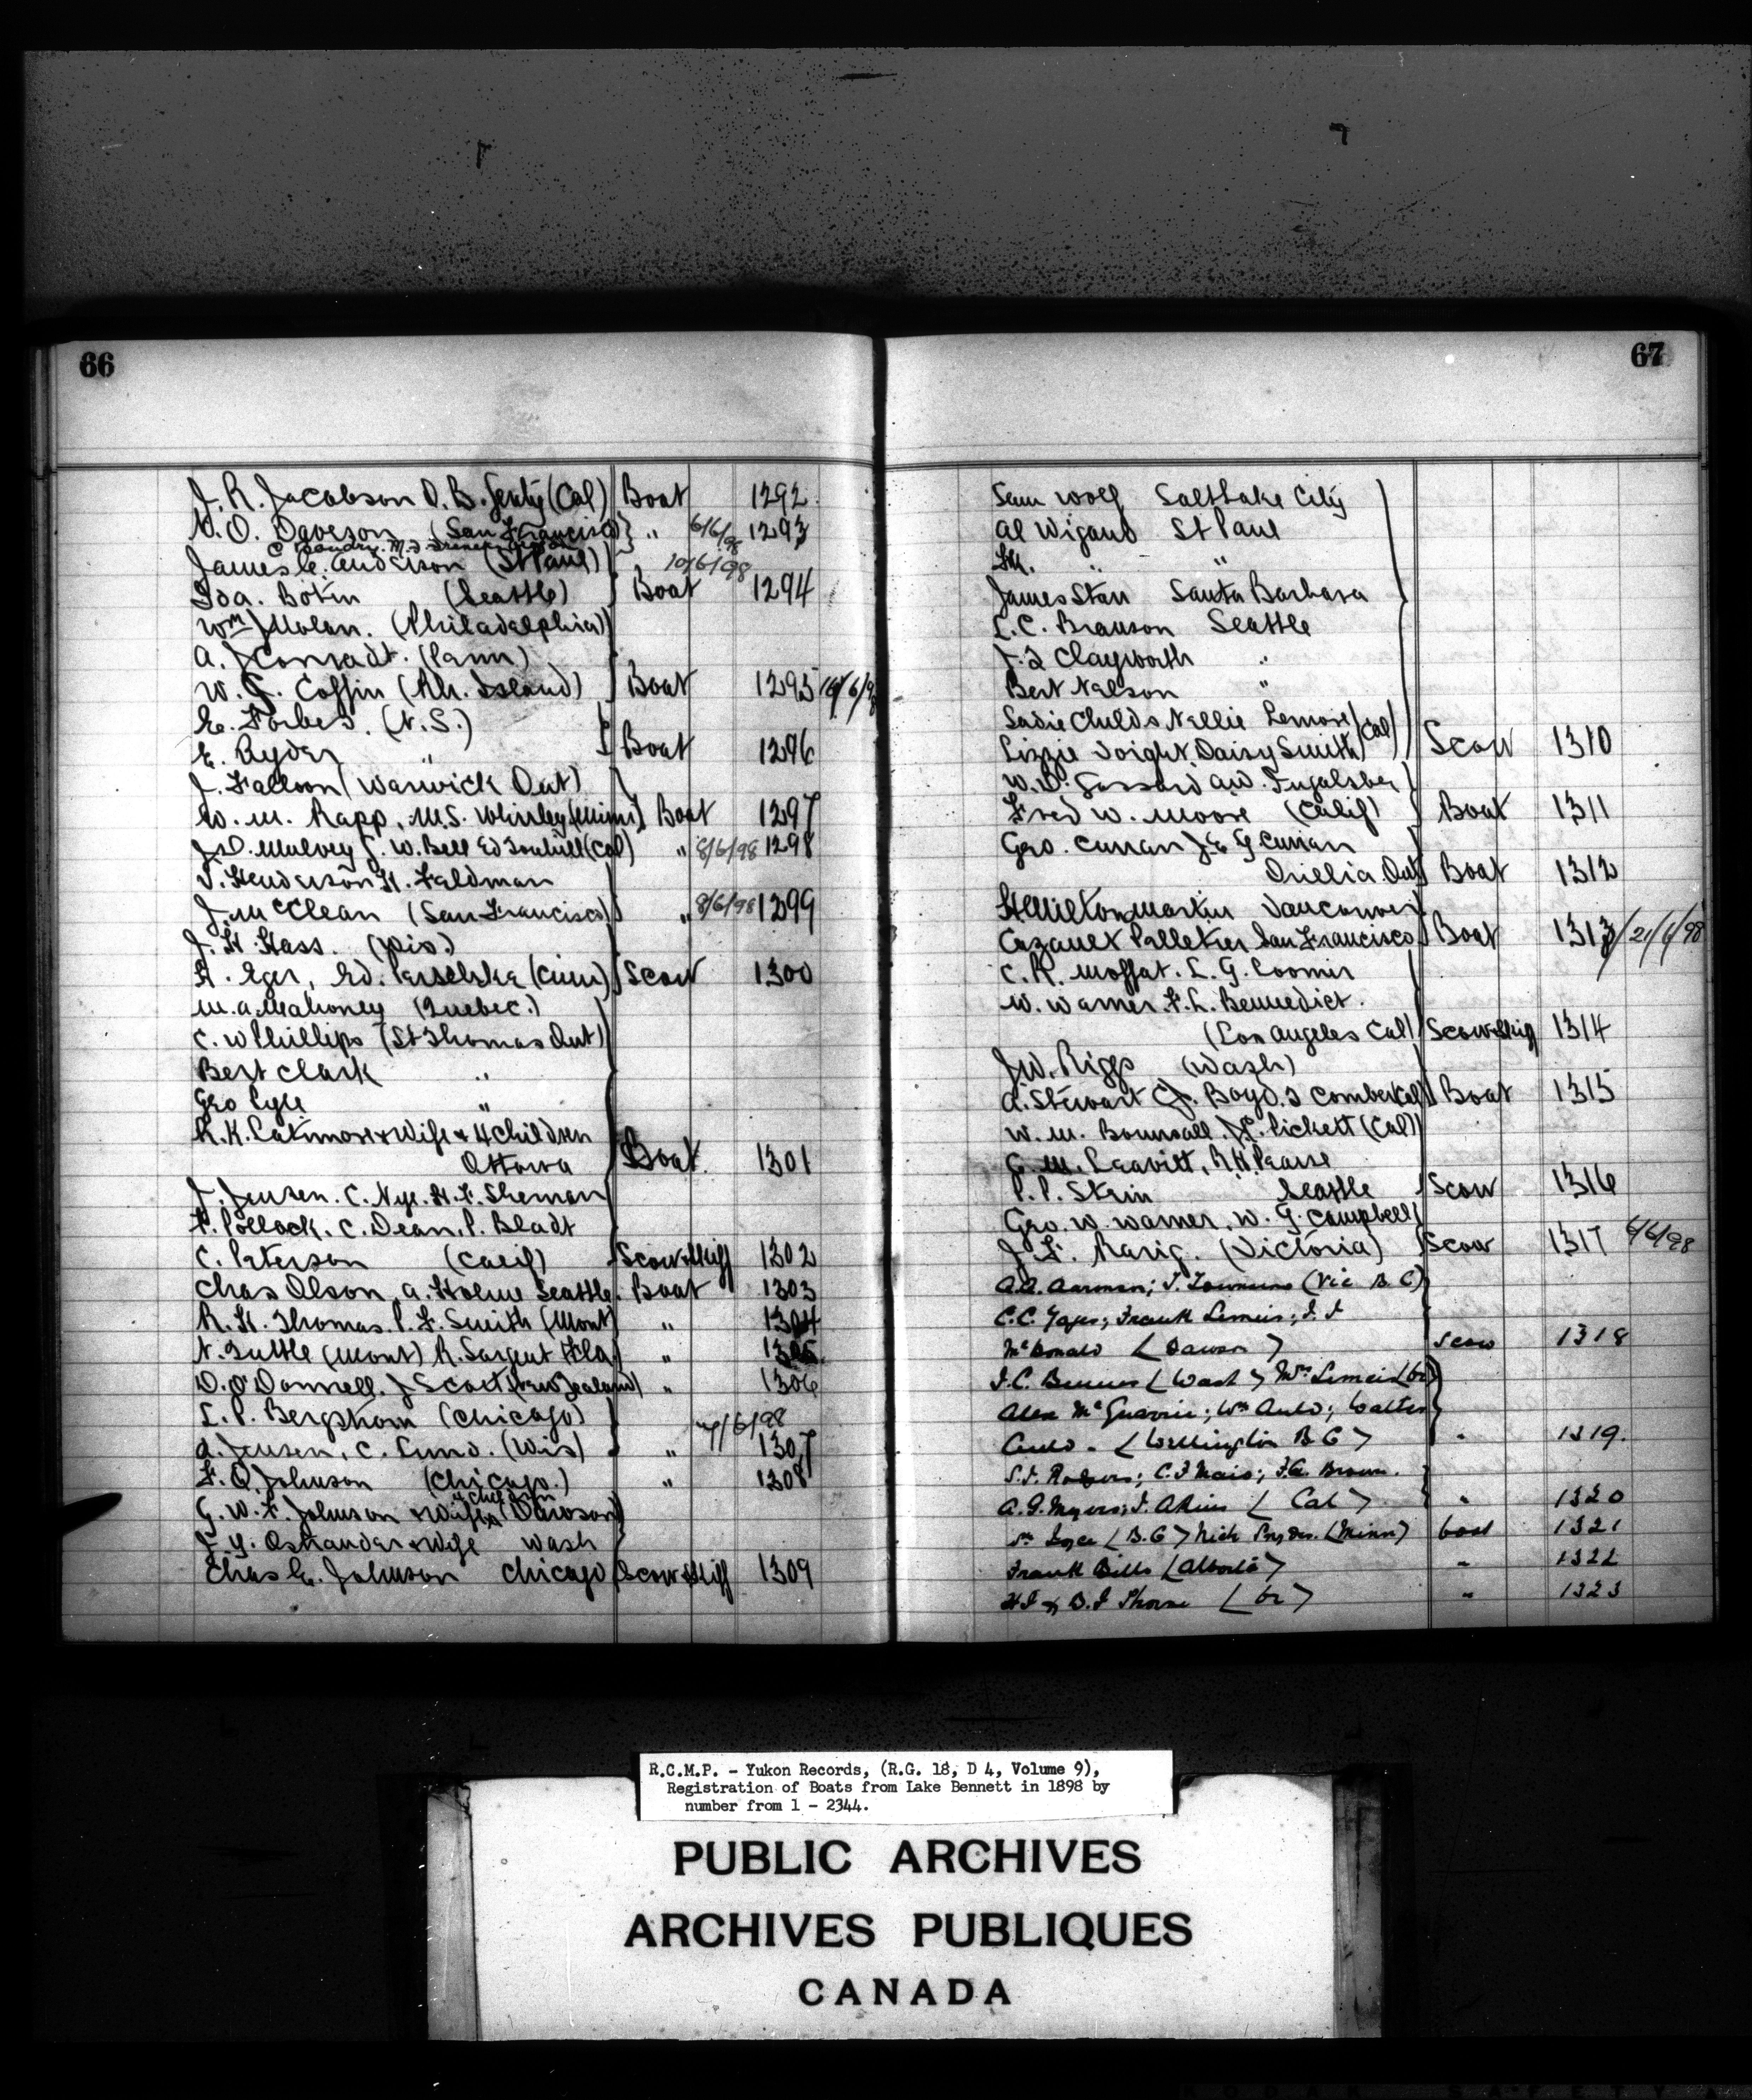 66
J. R. Jacobson O. B. (Cal) Boat 1292
N. O. Daveson (San Francisco) " 6/6/98 1293
C
James C. Anderson (St Paul) 10/6/98
Ida. Botkin (Seattle) Boat 1294
Wm J Nolan. (Philadelphia)
A. J Conradt. (Penn)
W. G. Coffin (Rh. Island) Boat 1295 10/6/98
E. Forbes. (N.S.)
E. Ryder " Boat 1296
J. Falloon (Warwick Ont)
W. M. Rapp, M.S. (Minn) Boat 1297
J. D. Mulvey G. W. Bell Ed (Cal) " 8/6/98 1298
J. Henderson H. Feldman
J. McClean (San Francisco) " 8/6/98 1299
J. H Hass. (Wis)
A. Eger, Ed. Scow 1300
M. A. Mahoney (Quebec.)
C. W Phillips (St Thomas Ont)
Bert Clark "
Geo Cyle "
R. K. Latimore & Wife & 4 Children
Ottawa Boat 1301
J. Jensen. C. Nye. H. F. Sherman
F. Pollock. C. Dean. P. Bladt
C. Peterson (Calif) Scow & Skiff 1302
Chas Olson. A. Holme Seattle. Boat 1303
R. H. Thomas. P. F. Smith (Mont) " 1304
N. Tuttle (Mont) R. Sargent Fla " 1305
D. O'Donnell. J Scott (New Zealand) " 1306
L. P. Bergstrom (Chicago) 7/6/98
A. Jensen. C. Lund. (Wis) " 1307
F. O. Johnson (Chicago.) " 1308
G. W. F. Johnson & Wife Dawson
J. Y. Ostrander & Wife Wash
Chas E. Johnson Chicago Scow & Skiff 1309
67
Sam Wolf Salt Lake City
Al Wigand St Paul
" "
James Starr Santa Barbara
L. C. Branson Seattle
J. T Clayworth "
Bert Nelson "
Sadie Childs Nellie Lemore (Cal)
Lizzie Voight. Daisy Smith Scow 1310
W. D. Gossard A W. Fugalsber
Fred W. Moore (Calif) Boat 1311
Geo. Curran J. E G Curran
Orillia Ont Boat 1312
H Milton Martin Vancouver
Cazanet Pelletier San Francisco Boat 1313 21/6/98
C. R. Moffat. L. G. Loomis
W. Warner. F. L. Bennedict.
(Los Angeles Cal) Scow & Skiff 1314
J. W. Riggs (Wash)
A. Stewart J. Boyd. Boat 1315
W. M. Bounsall. Pickett (Cal)
C. M. Leavitt, R. H. Pearse
P. P. Stein Seattle Scow 1316
Geo. W. Warner. W. G. Campbell
J. F. Rarig. (Victoria) Scow 1317 6/6/98
A. A. Aarman; J. (Vic B.C)
C. C. Yager; Frank Lemeis; J. J
McDonald (Dawson) scow 1318
J. C. (Wash)
Alex McGuarrie; Wm Auld; Walter
Auld - (Wellington B C) " 1319.
S. J. Rodgers; C. J Mais; F. A. Brown.
A. G. Myers; J. Akins (Cal) " 1320
Joyce (B.C) Nick Snyder. (Minn) boat 1321
Frank Bills (Alberta) " 1322
H J & D. J Thorne (Or) " 1323
R.C.M.P. - Yukon Records, (R.G. 18, D 4, Volume 9),
Registration of Boats from Lake Bennett in 1898 by
number from 1 - 2344.
PUBLIC ARCHIVES
ARCHIVES PUBLIQUES
CANADA